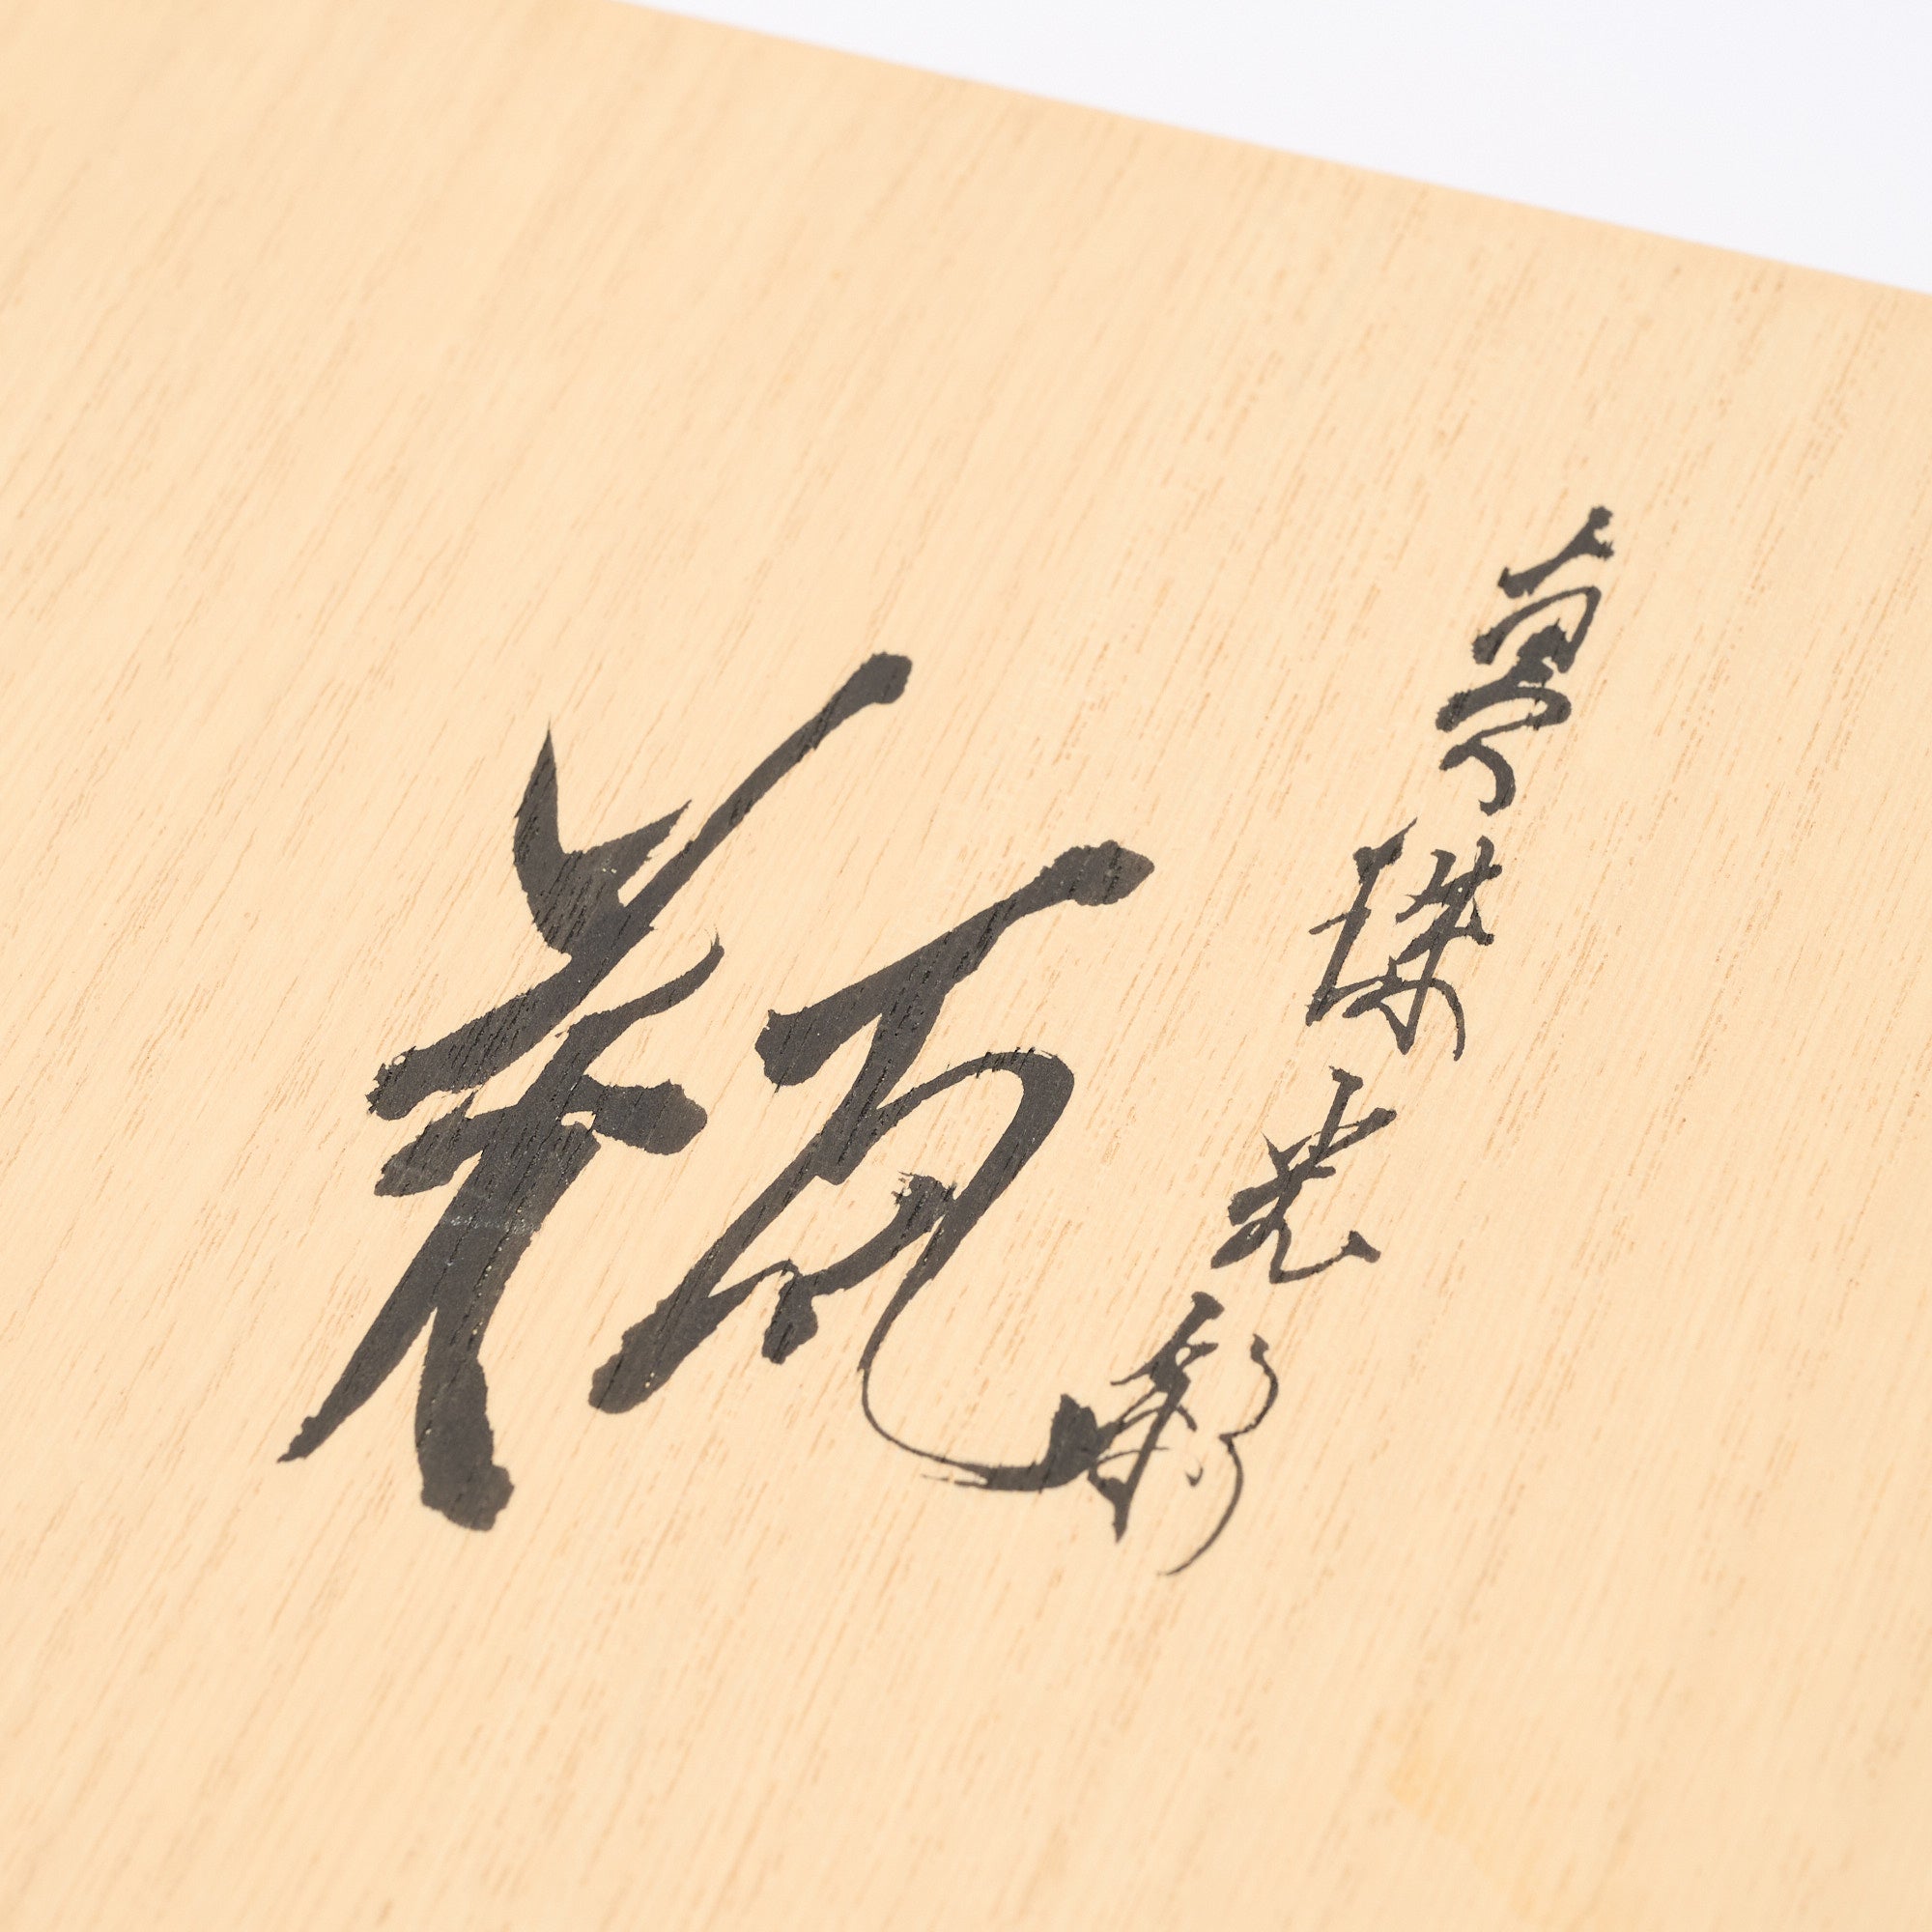 真珠光彩
瓶